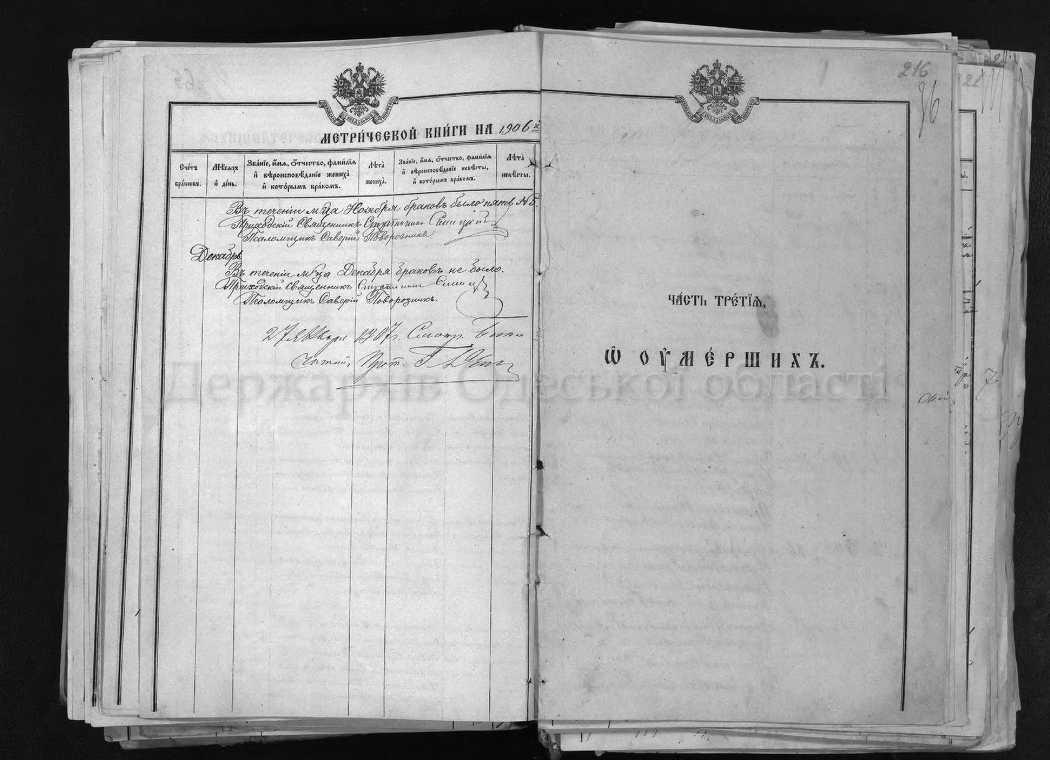 МЕТРИЧЕСКОЙ КНИГИ НА 1906 г
Счетъ браковъ.
Мѣсяцъ и день.
Званіе, имя, отчество, фамилія и вѣроисповѣданіе жениха и которымъ бракомъ.
Лѣта жениха.
Званіе, имя, отчество, фамилія и вѣроисповѣданіе невѣсты, и которымъ бракомъ.
Лѣта невѣсты.
Въ теченіи м-ца Ноября браковъ было пять № 5.
Приходскій Священникъ
Псаломщикъ Саворій Поворозникъ
Декабрь
Въ теченіи м-ца Декабря браковъ не было.
Приходскій Священникъ
Псаломщикъ Саворій Поворозникъ.
27 Января 1907 г.
216
ЧАСТЬ ТРЕТІЯ.
Ѽ ОУМЕРШИХЪ.
Держархів Одеської області